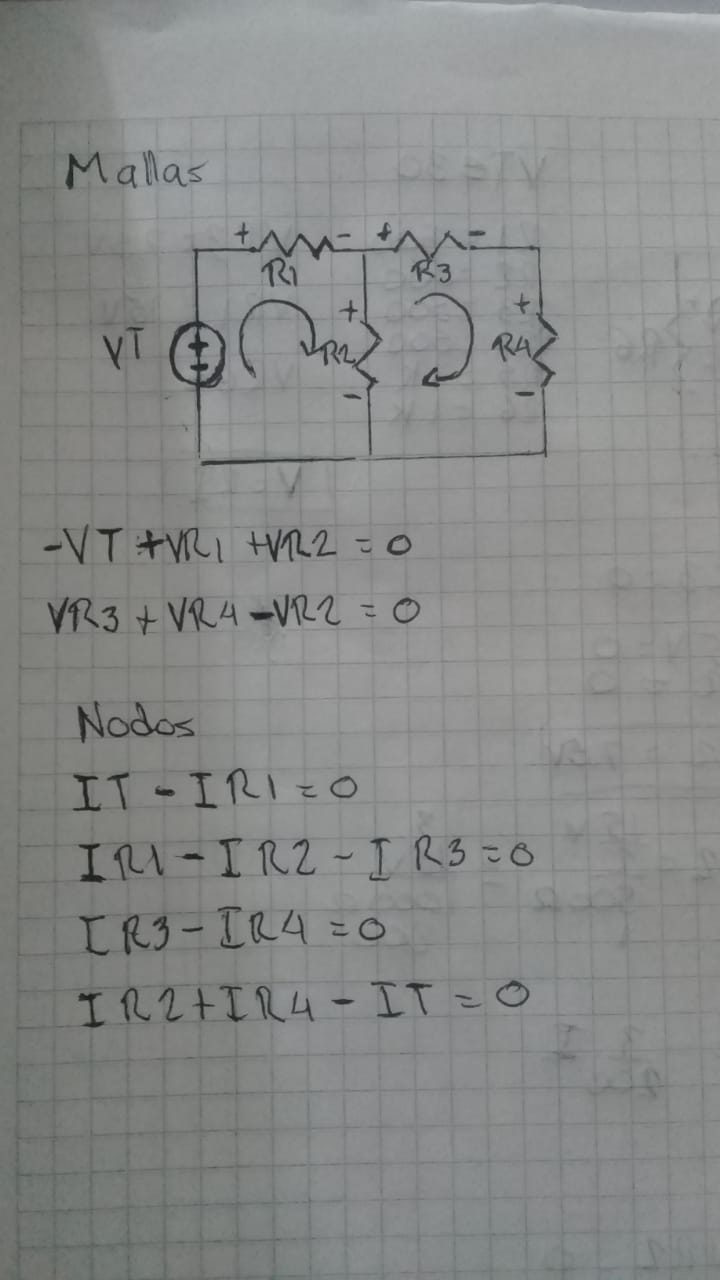 Mallas
+ - + -
R1 R3
VT + - + R2 - + R4 -
-VT +VR1 +VR2 = 0
VR3 + VR4 -VR2 = 0
Nodos
IT - IR1 = 0
IR1 - IR2 - IR3 = 0
IR3 - IR4 = 0
IR2 + IR4 - IT = 0